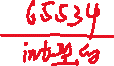 65534
int型